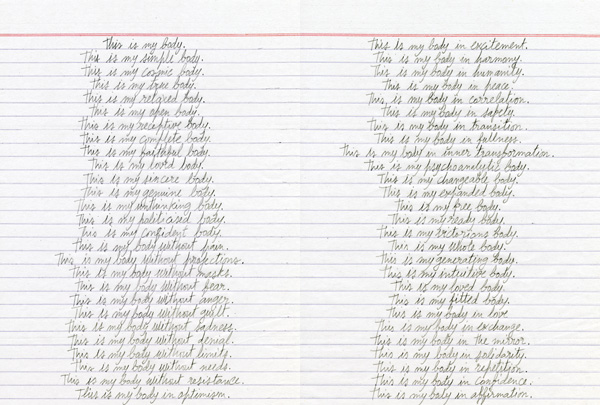 This is my body.
This is my simple body.
This is my cosmic body.
This is my true body.
This is my relaxed body.
This is my open body.
This is my receptive body.
This is my complete body.
This is my faithful body.
This is my loved body.
This is my sincere body.
This is my genuine body.
This is my unthinking body.
This is my politicised body.
This is my confident body.
This is my body without pain.
This is my body without projections.
This is my body without masks.
This is my body without fear.
This is my body without anger.
This is my body without guilt.
This is my body without sadness.
This is my body without denial.
This is my body without limits.
This is my body without needs.
This is my body without resistance.
This is my body in optimism.
This is my body in excitement.
This is my body in harmony.
This is my body in humanity.
This is my body in peace.
This is my body in correlation.
This is my body in safety.
This is my body in transition.
This is my body in fullness.
This is my body in inner transformation.
This is my psychoanalytic body.
This is my changeable body.
This is my expanded body.
This is my free body.
This is my ready body.
This is my victorious body.
This is my whole body.
This is my generating body.
This is my intuitive body.
This is my loved body.
This is my fitted body.
This is my body in love.
This is my body in exchange.
This is my body in the mirror.
This is my body in solidarity.
This is my body in repetition.
This is my body in confidence.
This is my body in affirmation.